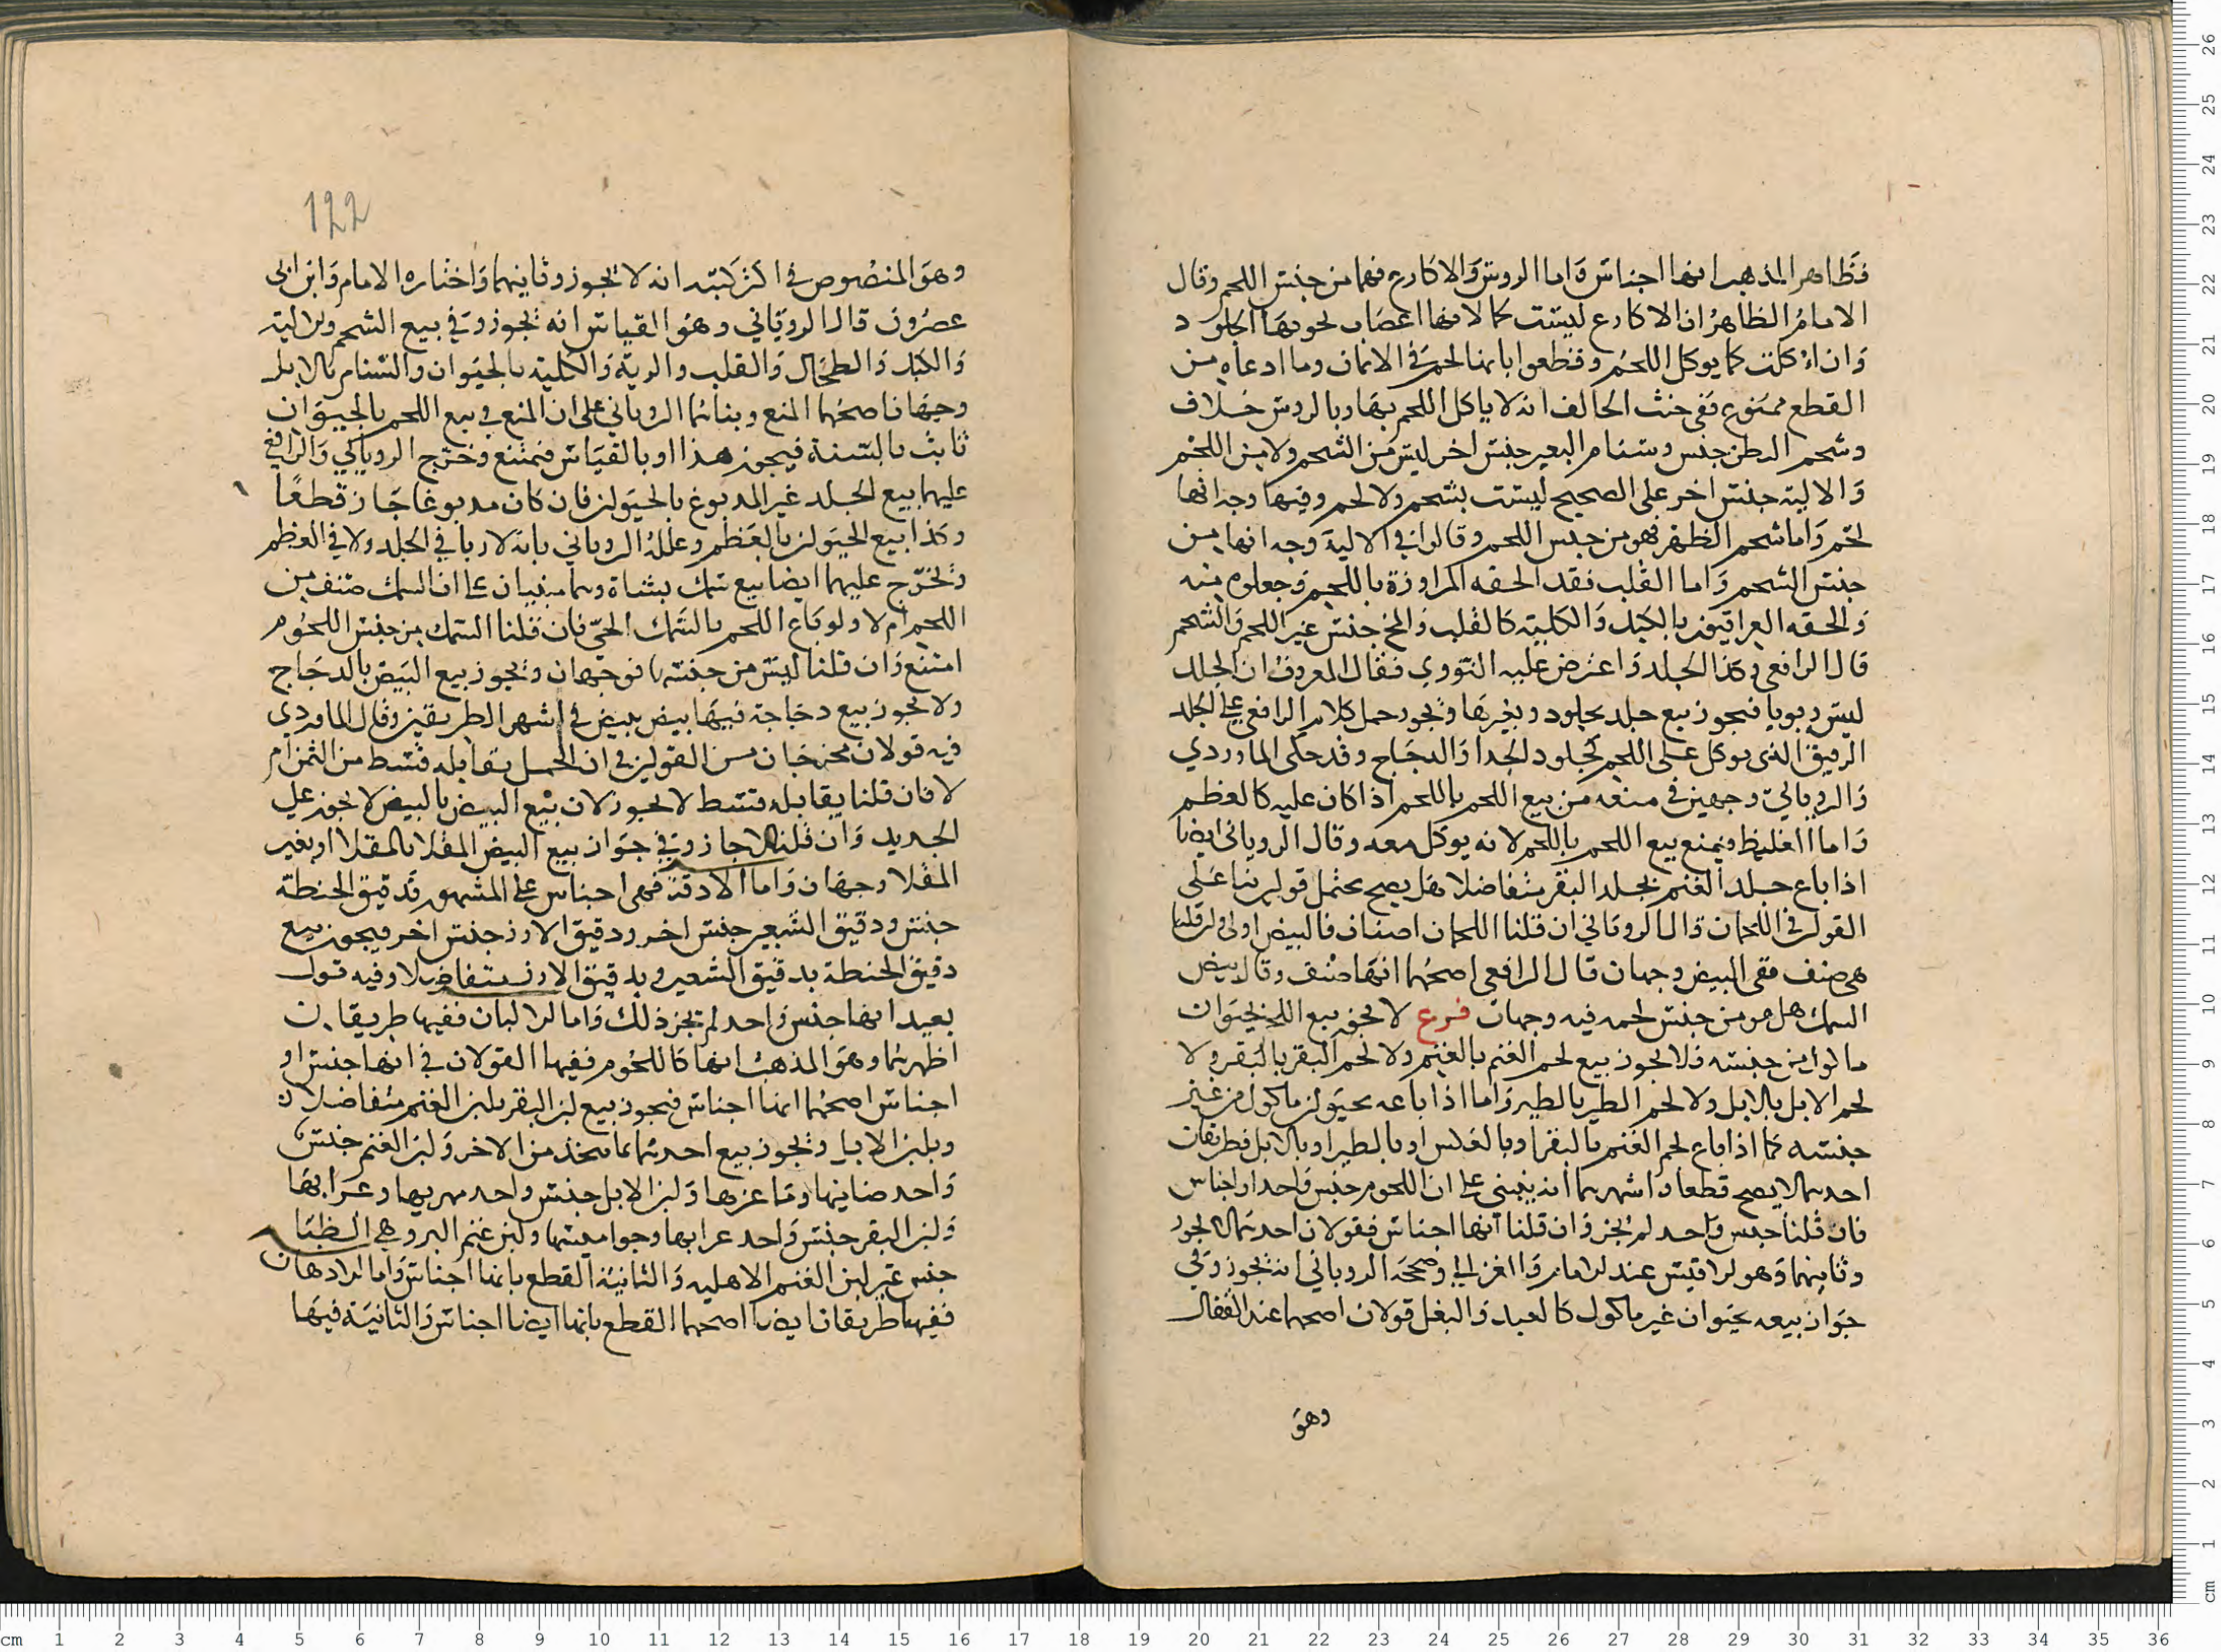 فظاهر المذهب انها اجناس واما الروس والاكارع فهما من جنس اللحم وقال
الامام الظاهر ان الاكارع ليست كما لانها اعصاب لحومها الجلود
وان اكلت كما يوكل اللحم وقطعوا بانها لحم في الايمان وما ادعاه من
القطع ممنوع ففي حنث الحالف انه لا ياكل اللحم بها وبالروس خلاف
وشحم البطن جنس وسنام البعير جنس اخر ليس من الشحم ولا من اللحم
والالية جنس اخر على الصحيح ليست بشحم ولا لحم وفيها وجه انها
لحم واما شحم الظهر فهو من جنس اللحم وقالوا في الالية وجه انها من
جنس الشحم واما القلب فقد الحقه المراوزة باللحم وجعلوه منه
والحقه العراقيون بالكبد والكلية كالقلب والمخ جنس غير اللحم والشحم
قال الرافعي وكذا الجلد واعترض عليه النووي فقال المعروف ان الجلد
ليس ربويا فيجوز بيع جلد بجلود وبغيرها ويجوز حمل كلام الرافعي على الجلد
الرقيق الذي يوكل على اللحم كجلود الجدا والدجاج وقد حكى الماوردي
والروياني وجهين في منعه من بيع اللحم باللحم اذا كان عليه كالعظم
واما الغليظ فيمنع بيع اللحم باللحم لانه يوكل معه وقال الروياني ايضا
اذا باع جلد الغنم بجلد البقر متفاضلا هل يصح يحتمل قولين بنا على
القولين في اللحمان قال الروياني ان قلنا اللحمان اصناف فالبيض اولى وان قلنا
هي صنف ففي البيض وجهان قال الرافعي اصحهما انها صنف وقال بيض
السمك هل هو من جنس لحمه فيه وجهان فرع لا يجوز بيع اللحم بحيوان
ماكول من جنسه فلا يجوز بيع لحم الغنم بالغنم ولا لحم البقر بالبقر ولا
لحم الابل بالابل ولا لحم الطير بالطير واما اذا باعه بحيوان ماكول من غير
جنسه كما اذا باع لحم الغنم بالبقر او بالعكس او بالطير او بالابل فطريقان
احدهما لا يصح قطعا واشهرهما انه ينبني على ان اللحوم جنس واحد او اجناس
فان قلنا جنس واحد لم يجز وان قلنا انها اجناس فقولان احدهما لا يجوز
وثانيهما وهو الاقيس عند الامام والغزالي وصححه الروياني انه يجوز وفي
جواز بيعه بحيوان غير ماكول كالعبد والبغل قولان اصحهما عند القفال
وهو
122
وهو المنصوص في اكثر كتبه انه لا يجوز وثانيهما واختاره الامام وابن ابي
عصرون قال الروياني وهو القياس انه يجوز وفي بيع الشحم والالية
والكبد والطحال والقلب والرية والكلية بالحيوان والسنام بالابل
وجهان اصحهما المنع وبناهما الروياني على ان المنع في بيع اللحم بالحيوان
ثابت بالسنة فيجوز هذا او بالقياس فيمتنع وخرج الروياني والرافعي
عليهما بيع الجلد غير المدبوغ بالحيوان فان كان مدبوغا جاز قطعا
وكذا بيع الحيوان بالعظم وعلله الروياني بانه لا ربا في الجلد ولا في العظم
ويخرج عليهما ايضا بيع سمك بشاة وهما مبنيان على ان السمك صنف من
اللحم ام لا ولو باع اللحم بالسمك الحي فان قلنا السمك من جنس اللحوم
امتنع وان قلنا ليس من جنسها فوجهان ويجوز بيع البيض بالدجاج
ولا يجوز بيع دجاجة فيها بيض ببيض في اشهر الطريقين وقال الماوردي
فيه قولان مخرجان من القولين في ان الحمل يقابله قسط من الثمن ام
لا فان قلنا يقابله قسط لا يجوز لان بيع البيض بالبيض لا يجوز على
الجديد وان قلنا لا جاز وفي جواز بيع البيض المقلا بالمقلا او بغير
المقلا وجهان واما الادقة فهي اجناس على المشهور فدقيق الحنطة
جنس ودقيق الشعير جنس اخر ودقيق الارز جنس اخر فيجوز بيع
دقيق الحنطة بدقيق الشعير وبدقيق الارز متفاضلا وفيه قول
بعيد انها جنس واحد لم يجز ذلك واما الالبان ففيها طريقان
اظهرهما وهو المذهب انها كاللحوم ففيها القولان في انها جنس او
اجناس اصحهما انها اجناس فيجوز بيع لبن البقر بلبن الغنم متفاضلان
وبلبن الابل ويجوز بيع احدهما بما يتخذ من الاخر ولبن الغنم جنس
واحد ضانيها وماعزها ولبن الابل جنس واحد مهريها وعرابها
ولبن البقر جنس واحد عرابها وجواميسها ولبن غنم البر وهي الظبا
جنس غير لبن الغنم الاهليه والثانية القطع بانها اجناس واما الادهان
ففيها طريقان ايضا اصحهما القطع بانها ايضا اجناس والثانية فيها